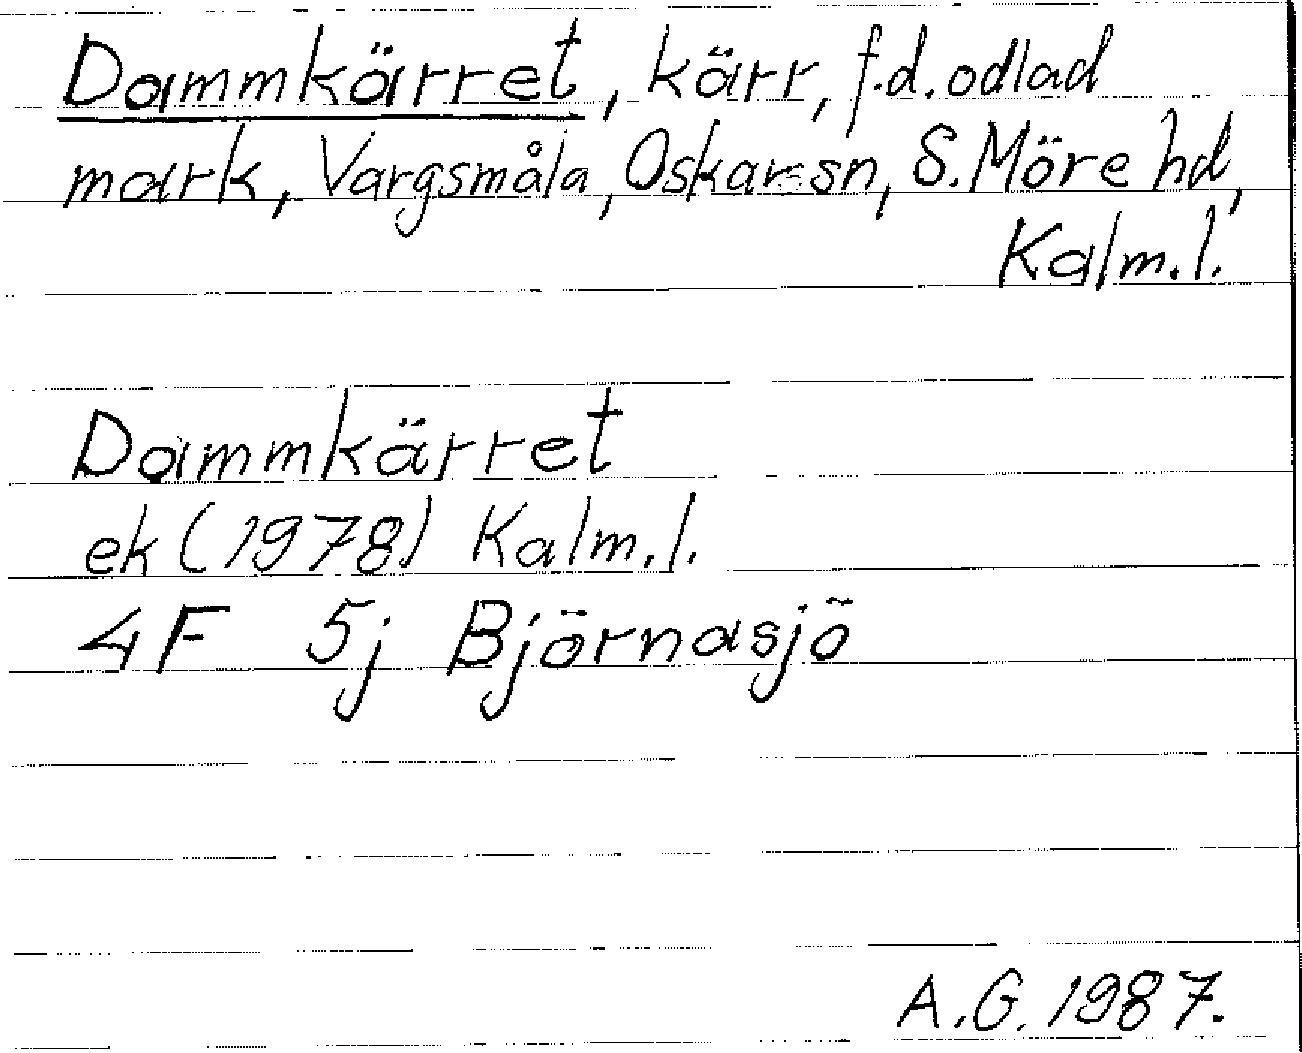 Dammkärret, kärr, f.d. odlad
mark, Vargsmåla, Oskar sn, S. Möre hd,
Kalm. l.
Dammkärret
ek (1978) Kalm. l.
4F 5j Björnasjö
A.G. 1987.